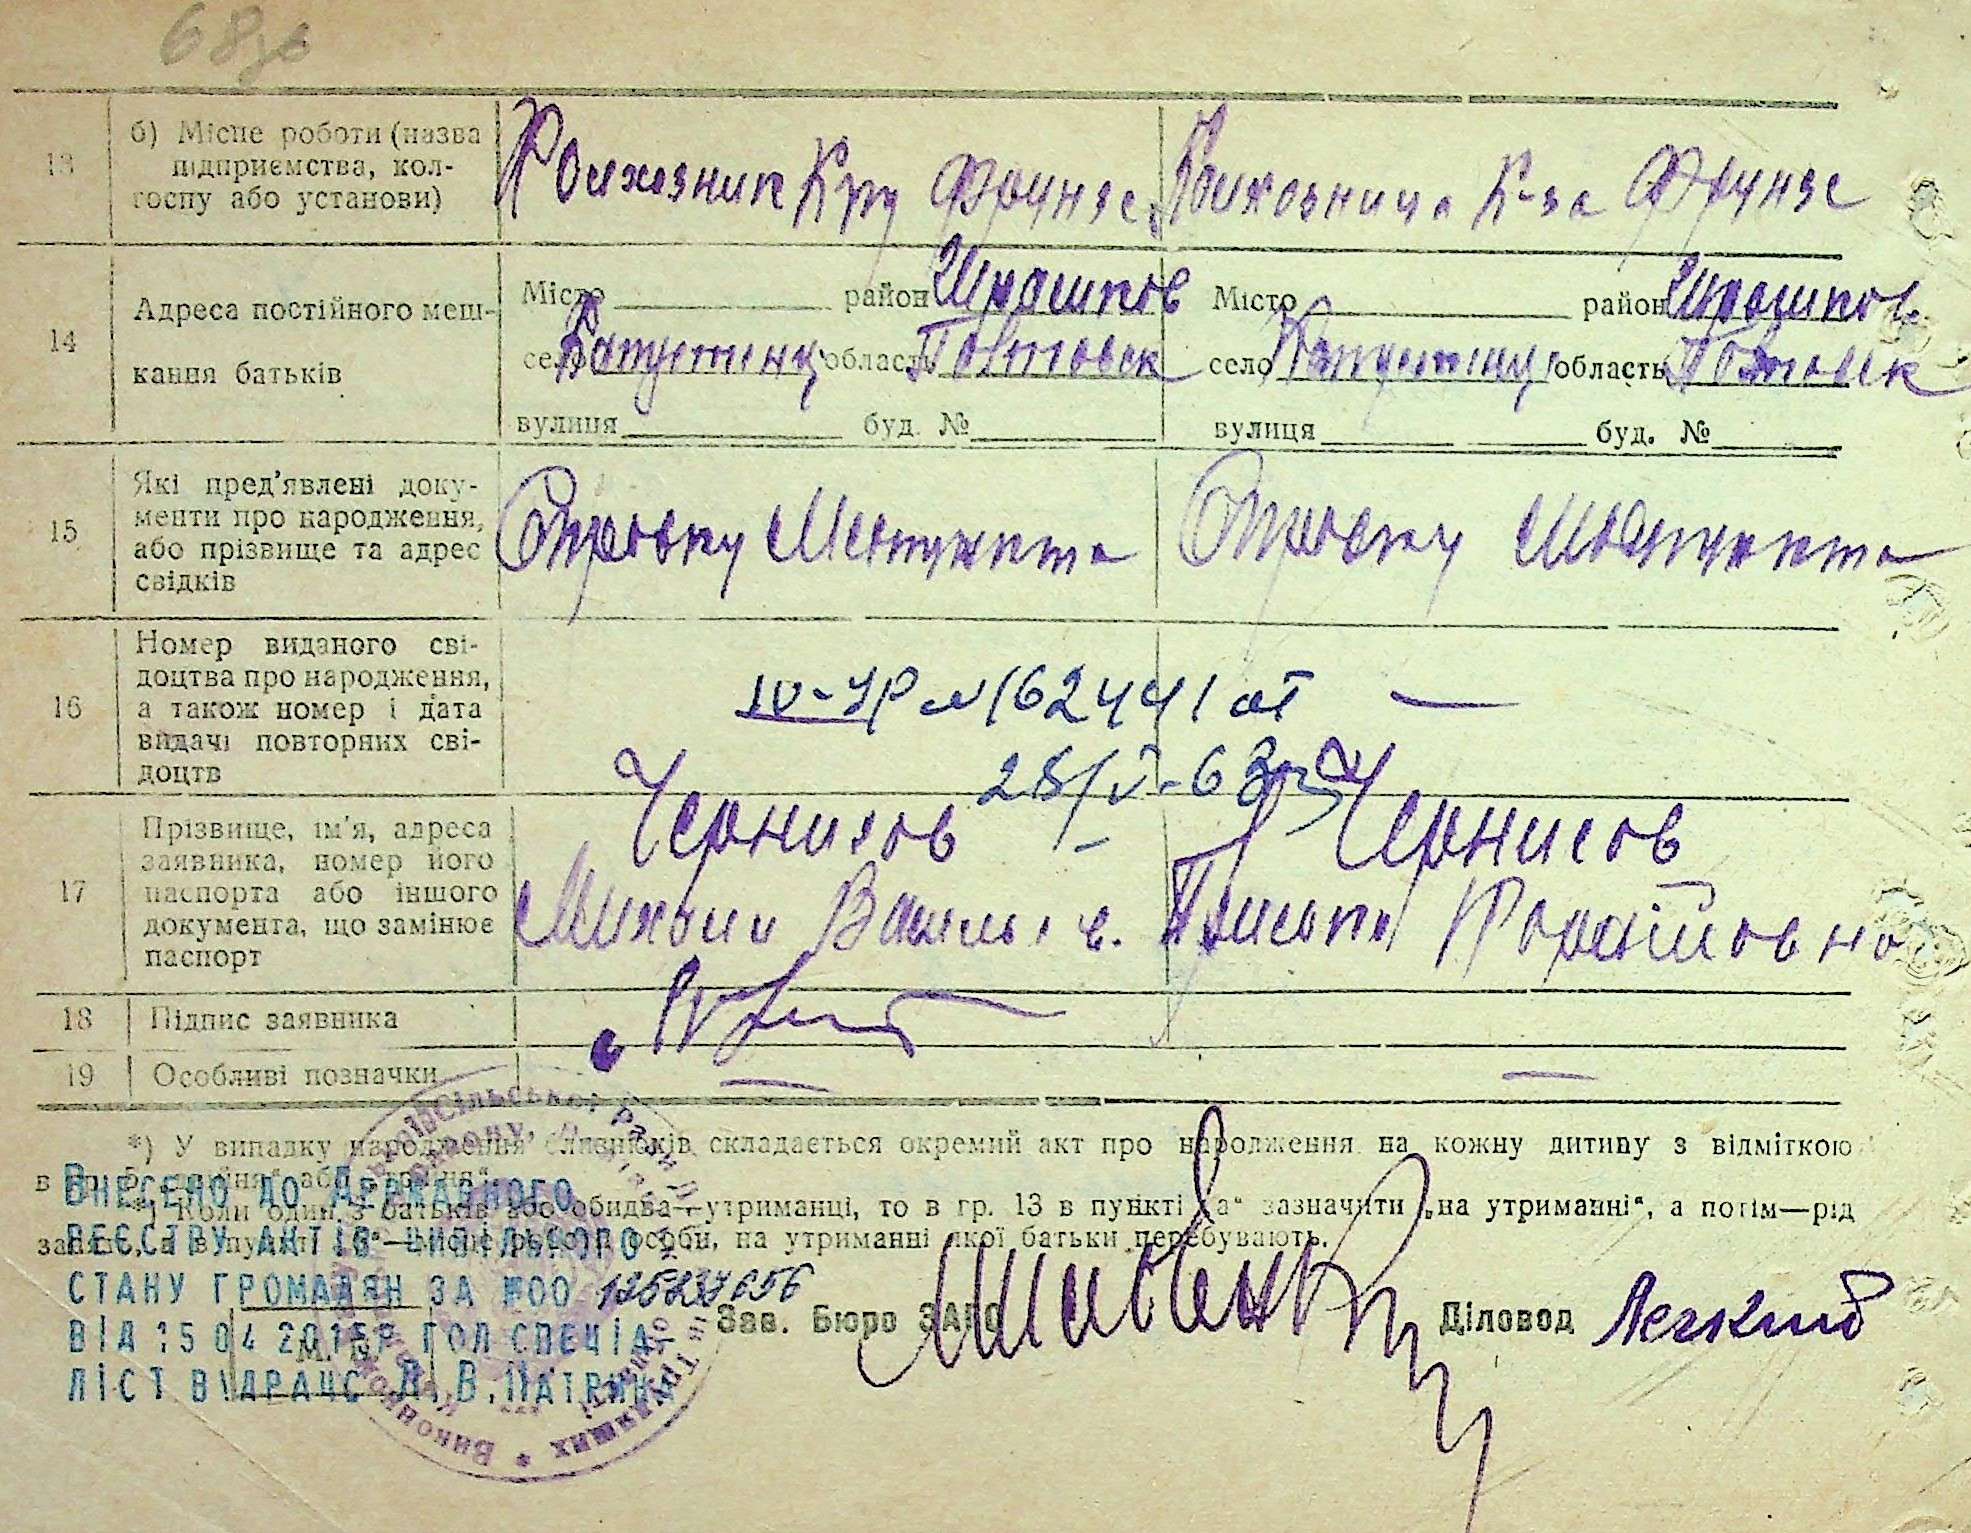 68
13
б) Місце роботи (назва
підприємства, кол-
госпу або установи)
Колхозник К-ну Фрунзе
Колхозница К-за Фрунзе
14
Адреса постійного меш-
кання батьків
Місто район
село область Полтовск
вулиця буд. №
Місто район
село область Полтовск
вулиця буд. №
15
Які пред'явлені доку-
менти про народження,
або прізвище та адрес
свідків
Справку Медпункта
Справку Медпункта
16
Номер виданого сві-
доцтва про народження,
а також номер і дата
видачі повторних сві-
доцтв
IV-УР №162441 от —
28/V-63
17
Прізвище, ім'я, адреса
заявника, номер його
паспорта або іншого
документа, що замінює
паспорт
Чернисов
Михаил
Чернисов
18
Підпис заявника
19
Особливі позначки
— —
*) У випадку народження близнюків складається окремий акт про народження на кожну дитину з відміткою
в гр. 5 „двійня“ або „трійня“.
*) Коли один з батьків або обидва—утриманці, то в гр. 13 в пункті „а“ зазначити „на утриманні“, а потім—рід
занять, а в пункті „б“—місце роботи особи, на утриманні якої батьки перебувають.
Внесено до Державного
реєстру актів цивільного
стану громадян за №00
від 15 04 2015р гол спеціа
ліст ВДРАЦС
М. П.
Зав. Бюро ЗАГС
Діловод Легкий